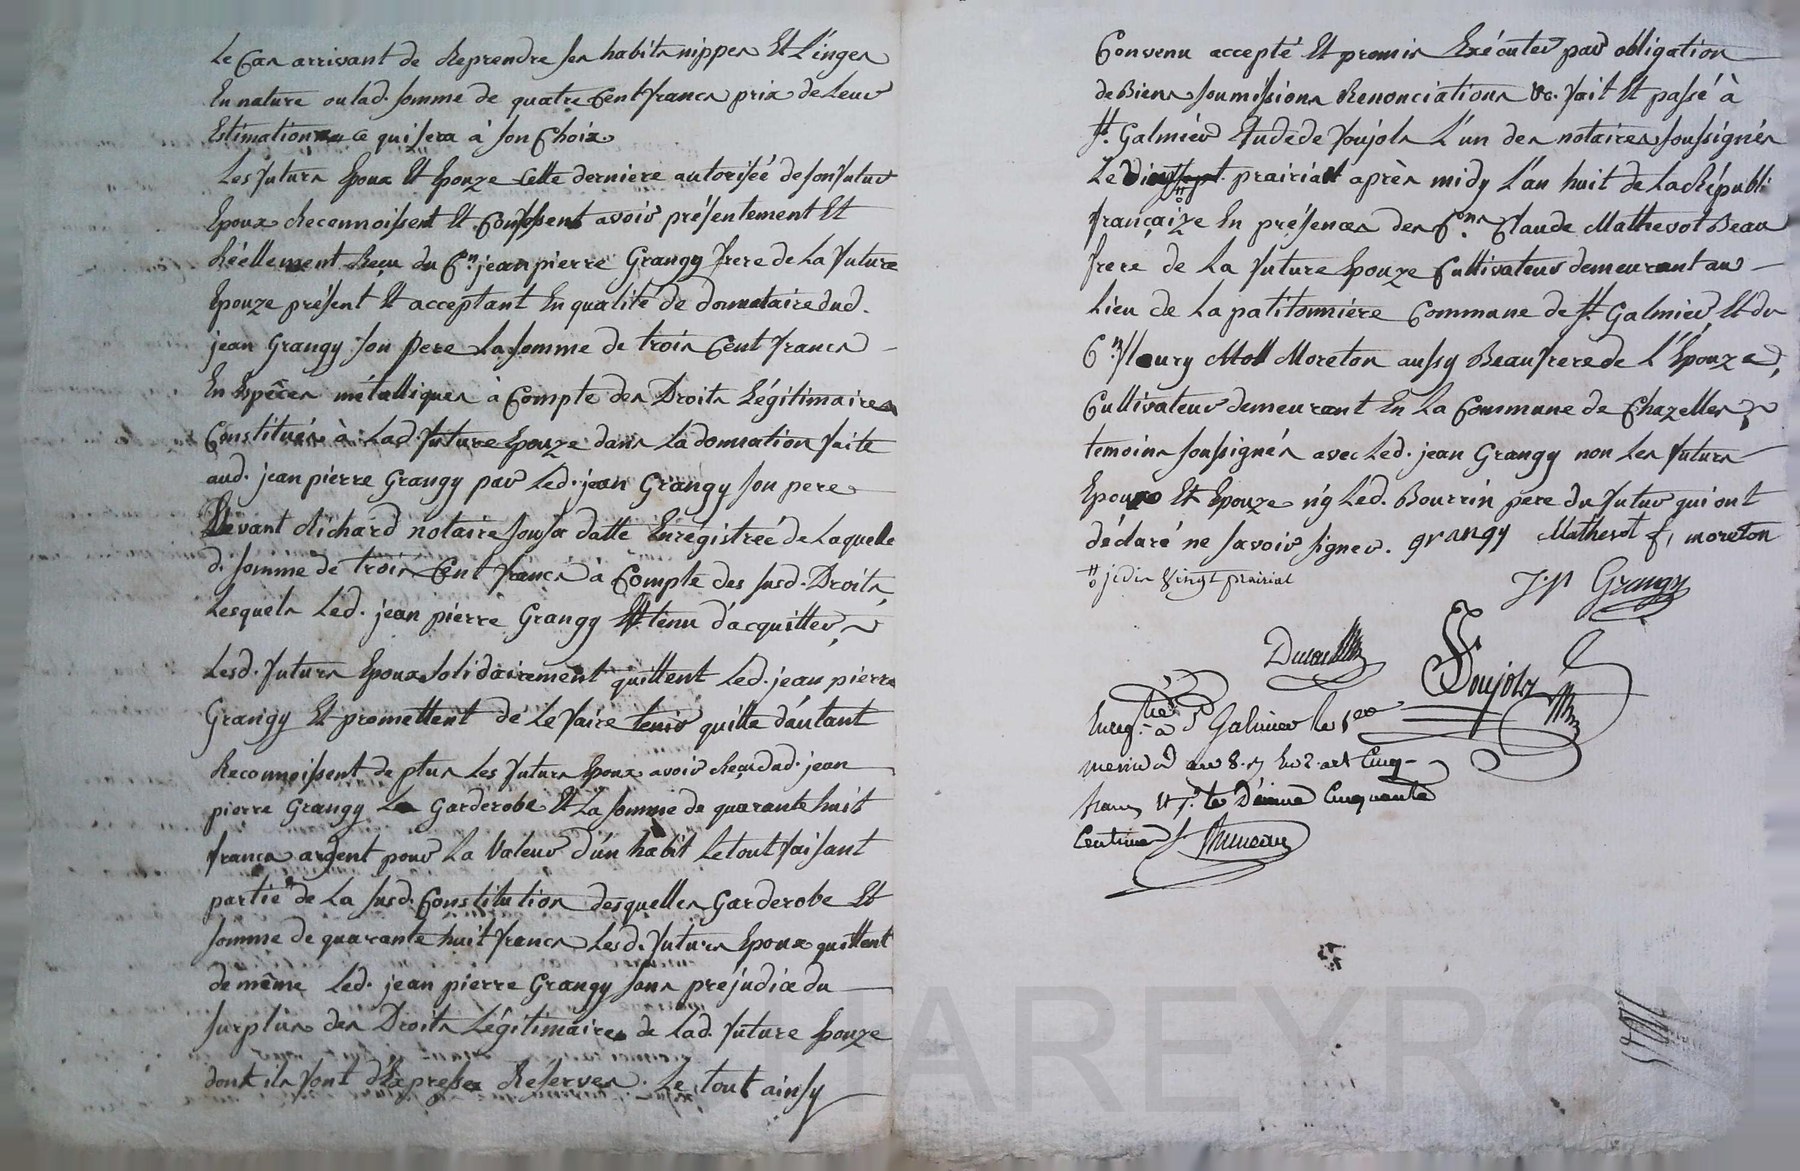 Le Cas arrivant de Reprendre ses habits nippes Et Linges
En nature ou lad. somme de quatre Cent francs prix de Leur
Estimation ce qui sera à son Choix
Les futurs Epoux Et Epouze Cette derniere autorisée de son futur
Epoux Reconnoissent Et Confessent avoir présentement Et
Réellement Reçu du Cn. jean pierre Grangy frere de La future
Epouze présent Et acceptant En qualité de donnataire dud.
jean Grangy son pere La somme de trois Cent francs
En Espêces métalliques à Compte des Droits Légitimaires
Constitués à Lad. future Epouze dans La donnation faite
aud. jean pierre Grangy par Led. jean Grangy son pere
Devant Richard notaire sous sa datte Enregistrée de Laquelle
d. somme de trois Cent francs à Compte des susd. Droits,
Lesquels Led. jean pierre Grangy Est tenu d'acquitter,
Lesd. futurs Epoux solidairement quittent Led. jean pierre
Grangy Et promettent de Le faire tenir quitte d'autant
Reconnoissent de plus Les futurs Epoux avoir Reçu dud. jean
pierre Grangy La Garderobe Et La somme de quarante huit
francs argent pour La Valeur d'un habit Le tout faisant
partie de La susd. Constitution desquelles Garderobe Et
somme de quarante huit francs Lesd. futurs Epoux quittent
de même Led. jean pierre Grangy sans préjudice du
surplus des Droits Légitimaires de Lad. future Epouze
dont ils font d'Expresses Reserves. Le tout ainsy
Convenu accepté Et promis Exécuter par obligation
de Biens soumissions Renonciations &c. fait Et passé à
St. Galmier Etude de Poujols L'un des notaires soussignés
Le Dix sept prairial après midy L'an huit de La Républ.
française En présences des Cns. Claude Mathevot Beau
frere de La future Epouze Cultivateur demeurant au
Lieu de La patitonniere Commune de St. Galmier, Et du
Cn. fleury Mott Moreton aussy Beaufrere de L'Epouze,
Cultivateur demeurant En La Commune de Chazelles
temoins soussignés avec Led. jean Grangy non Les futurs
Epoux Et Epouze n'y Led. Bourrin pere du futur qui ont
déclaré ne savoir signer. grangy Mathevot f, moreton
je dis Vingt prairial
J.P Grangy
Poujols
Enreg. à St Galmier le 1er
messidor an 8. Cinq
francs le Décime Cinquante
Centimes
CHAREYRON